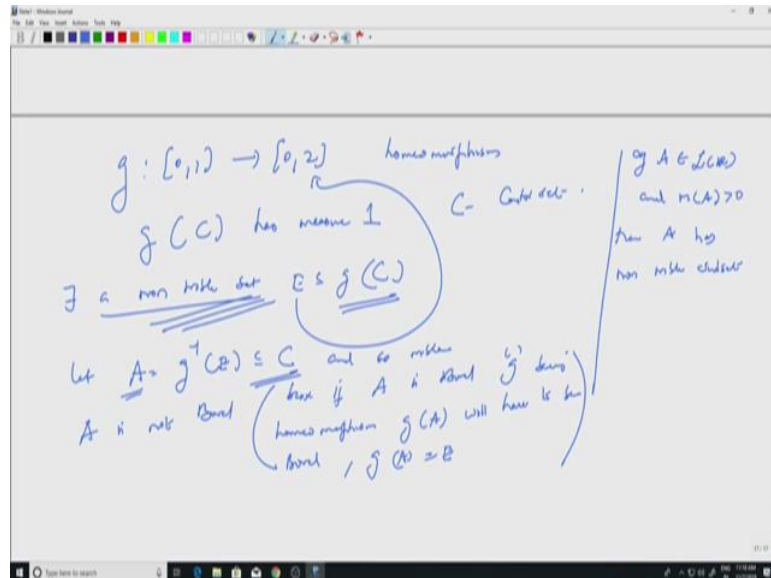 Note1 - Windows Journal
File Edit View Insert Actions Tools Help
g : [0,1] → [0,2] homeomorphism
g (C) has measure 1 C - Cantor set .
∃ a non mble set E ⊆ g (C)
let A = g⁻¹(E) ⊆ C and so mble
A is not Borel ( bcox if A is Borel g being
homeomorphism g(A) will have to be
Borel , g(A) = E )
if A ∈ L(R)
and m(A) > 0
then A has
non mble subsets
Type here to search
ENG 11:18 AM